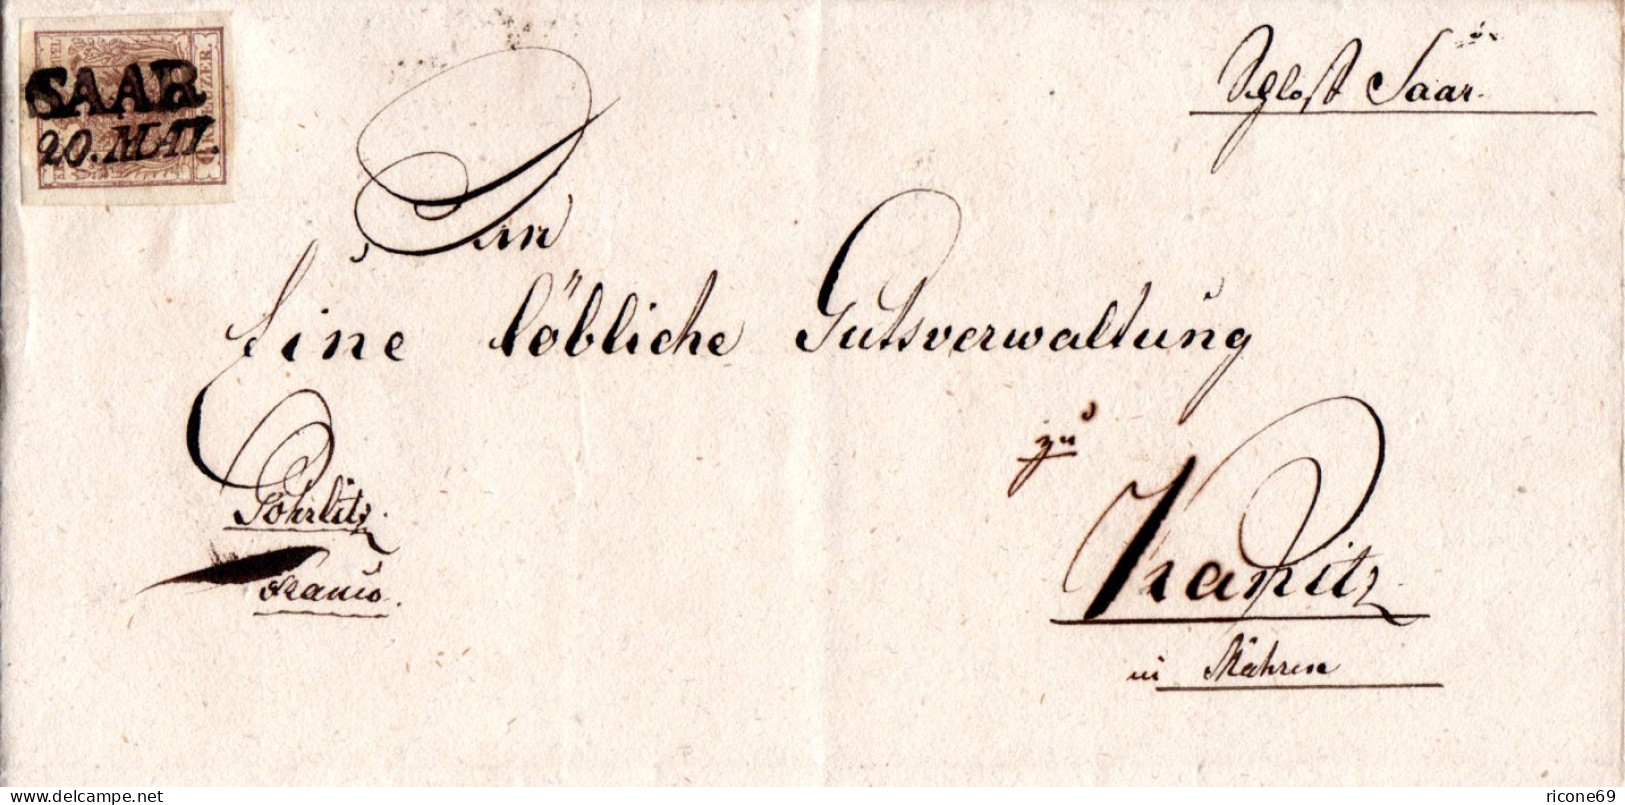 SAAR
20. MAI.
KREUZER.
Schloß Saar.
An
Eine löbliche Gutsverwaltung
zu
Kanitz
in Mähren
Pohrlitz.
franco.
www.delcampe.net
ricone69